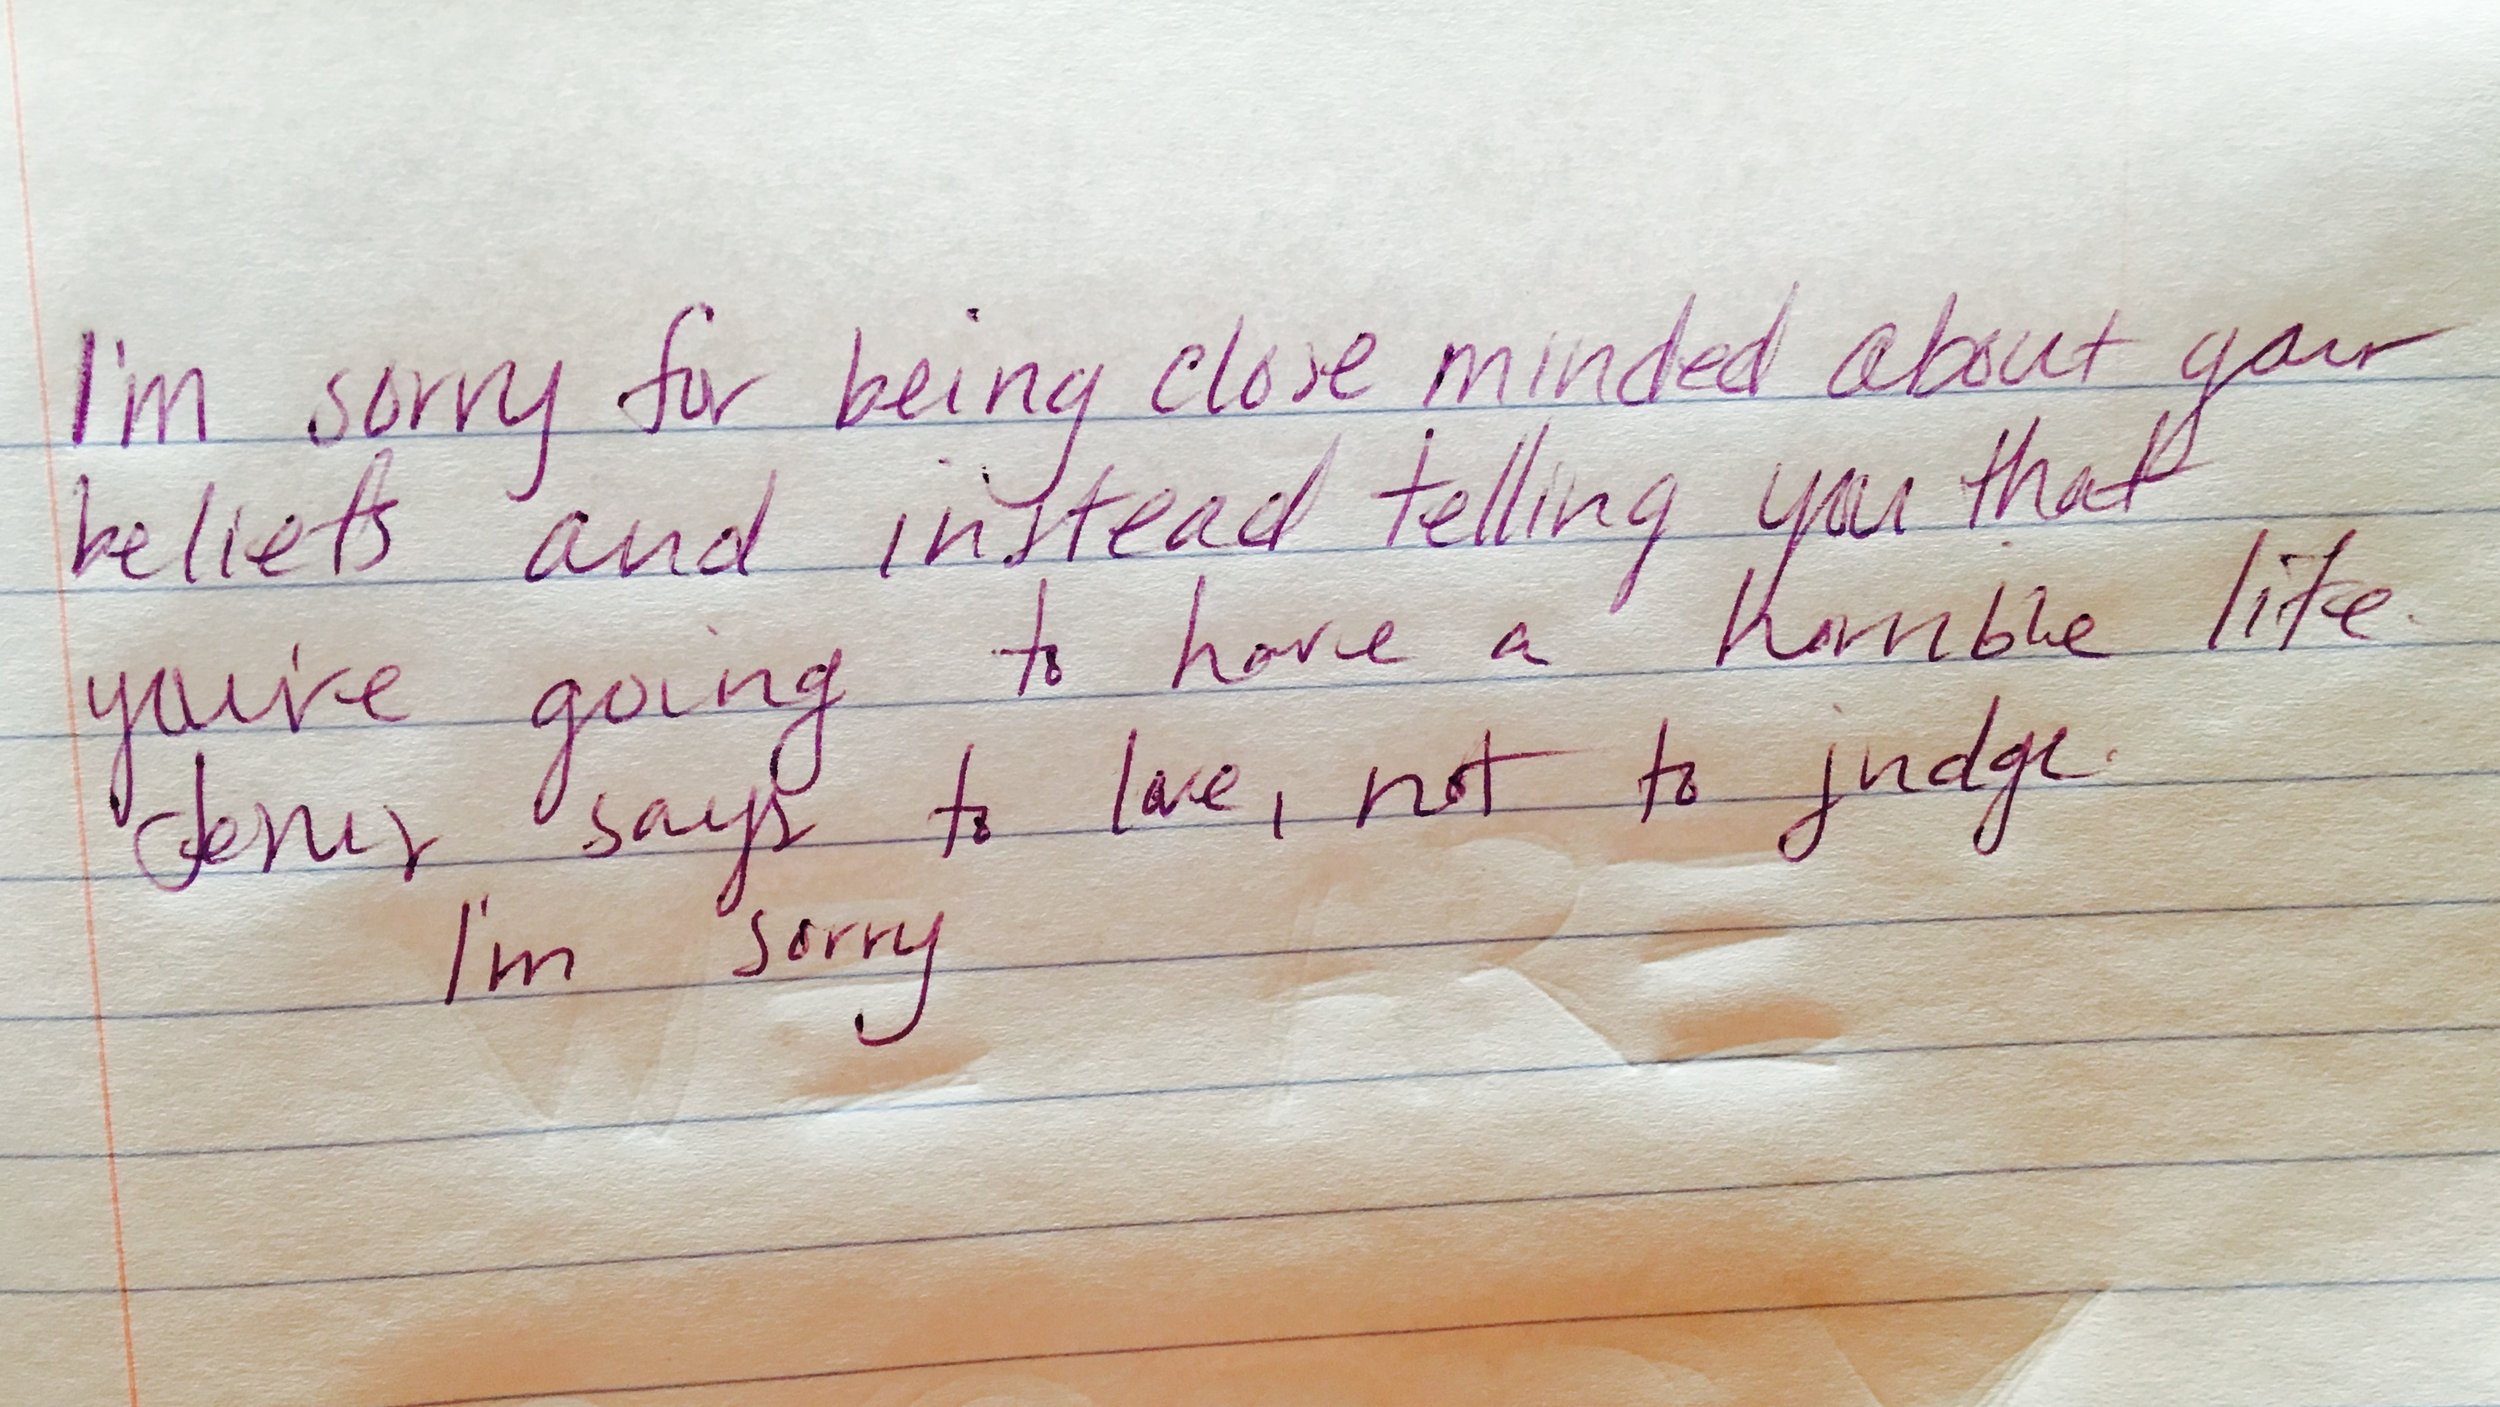 I'm sorry for being close minded about your
beliefs and instead telling you that
you're going to have a horrible life.
Jesus says to love, not to judge.
I'm sorry